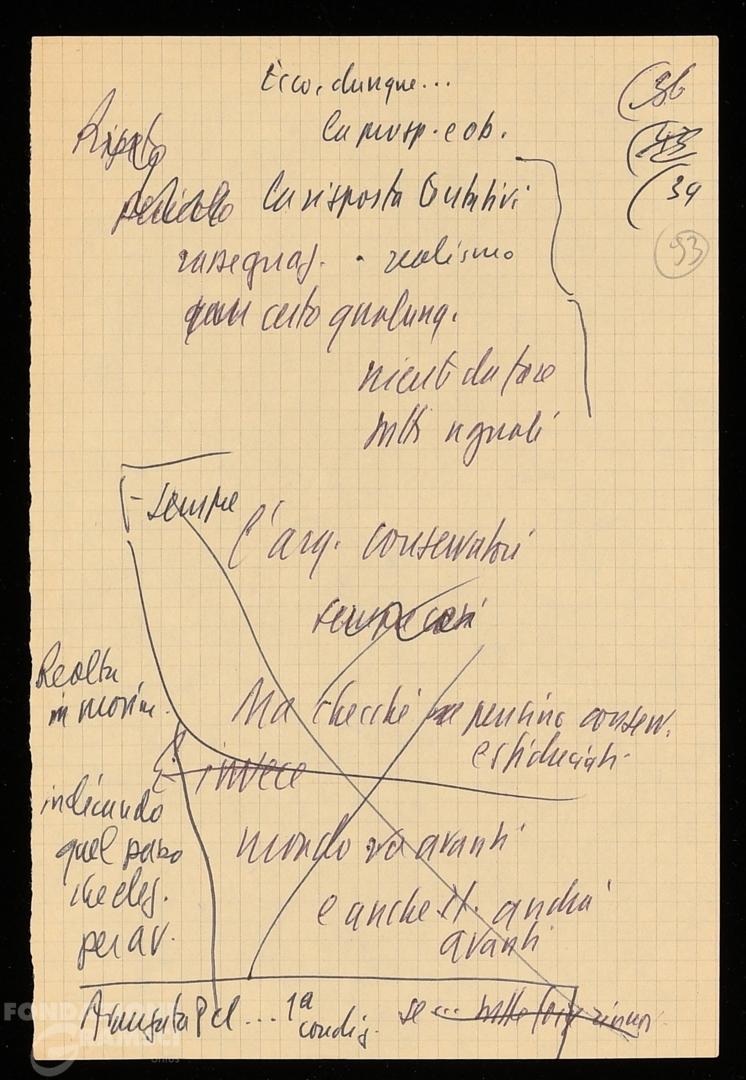 Ecco, dunque...
(36
La prosp. e ob.
(43
Rispetto
(34
pericolo La risposta tentativi
93
rassegnaz. · realismo
quasi certo qualunq.
niente da fare
tutti uguali
- sempre
l'arg. conservatori
sempre così
Realtà
in movim.
Ma checché ne pensino conserv.
e sfiduciati
E invece
indicando
quel passo
che
per av.
mondo va avanti
e anche It. andrà
avanti
Avanzata PCI... 1ª
condiz.
se... tutte forze
FONDAZIONE
GRAMSCI
onlus